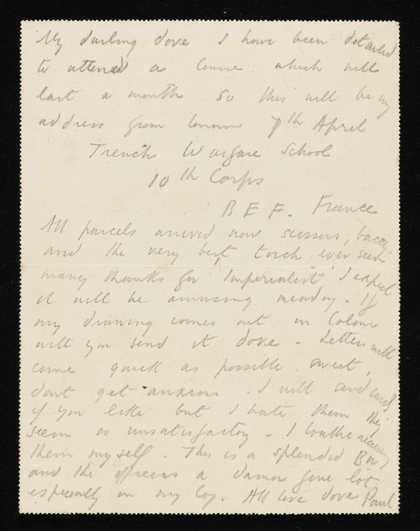 My darling dove I have been detailed
to attend a course which will
last a month so this will be my
address from tomorrow 7th April
Trench Warfare School
10th Corps
B E F. France
All parcels arrived now scissors, baccy
and the very best torch ever seen
many thanks for 'Imperialist' I expect
it will be amusing reading. If
my drawing comes out in Colour
will you send it dove - Letters will
come quick as possible sweet,
dont get anxious. I will send cards
if you like but I hate them they
seem so unsatisfactory. - I loathe receiving
them myself. This is a splendid Bn
and the officers a damn fine lot
especially in my Coy. All love dove Paul